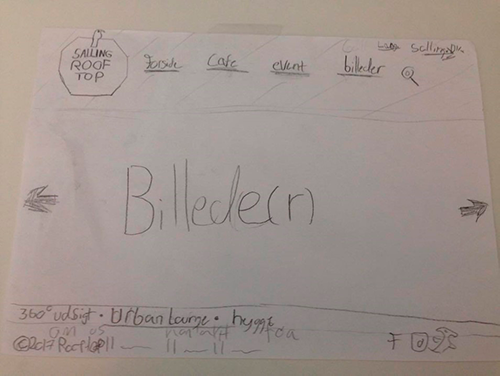 SALLING
ROOF
TOP
forside cafe event billeder
Billede(r)
360° udsigt · Urban Lounge · hygge
om os kontakt
©2017 Rooftop